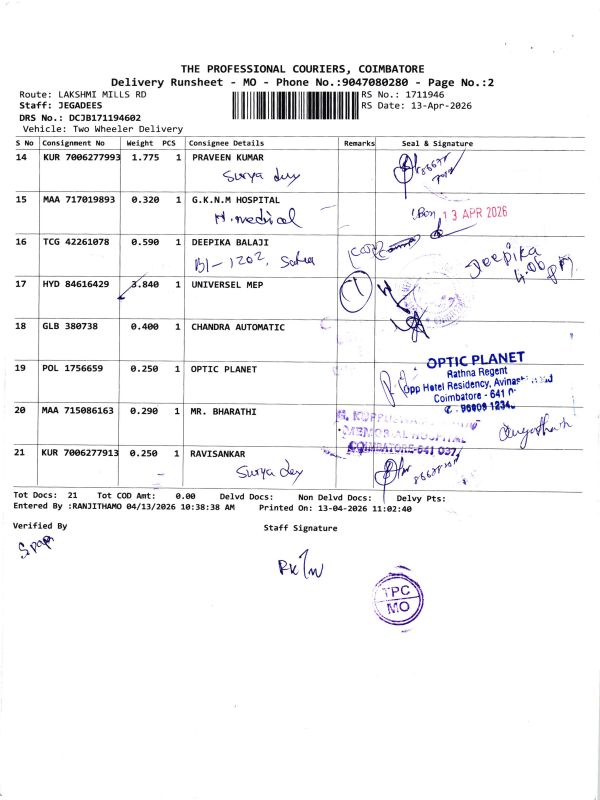 THE PROFESSIONAL COURIERS, COIMBATORE
Delivery Runsheet - MO - Phone No.:9047080280 - Page No.:2
Route: LAKSHMI MILLS RD RS No.: 1711946
Staff: JEGADEES RS Date: 13-Apr-2026
DRS No.: DCJB171194602
Vehicle: Two Wheeler Delivery
S No Consignment No Weight PCS Consignee Details Remarks Seal & Signature
14 KUR 7006277993 1.775 1 PRAVEEN KUMAR
Surya dev
15 MAA 717019893 0.320 1 G.K.N.M HOSPITAL
H.medical 13 APR 2026
16 TCG 42261078 0.590 1 DEEPIKA BALAJI
B1-1202, Deepika
4.06 pm
17 HYD 84616429 3.840 1 UNIVERSEL MEP
18 GLB 380738 0.400 1 CHANDRA AUTOMATIC
19 POL 1756659 0.250 1 OPTIC PLANET
OPTIC PLANET
Rathna Regent
Opp Hotel Residency,
Coimbatore - 641
20 MAA 715086163 0.290 1 MR. BHARATHI
MEMORIAL HOSPITAL
COIMBATORE-641 037
21 KUR 7006277913 0.250 1 RAVISANKAR
Surya dev
Tot Docs: 21 Tot COD Amt: 0.00 Delvd Docs: Non Delvd Docs: Delvy Pts:
Entered By :RANJITHAMO 04/13/2026 10:38:38 AM Printed On: 13-04-2026 11:02:40
Verified By Staff Signature
TPC
MO